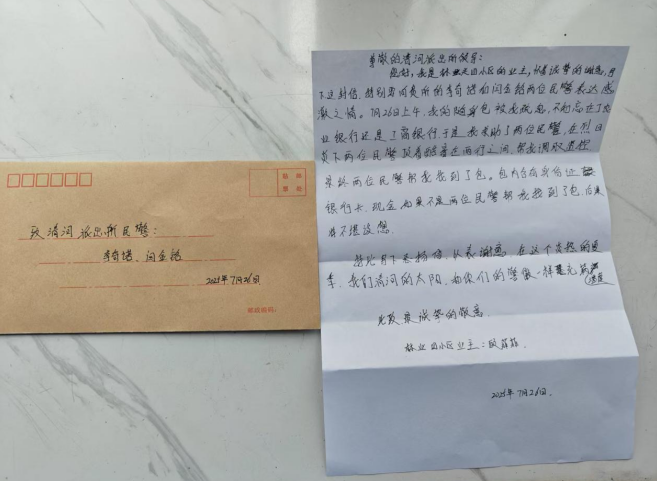 致清河派出所民警：
李奇塔、闫金括
2025年7月26日
邮政编码：
贴邮
票处
尊敬的清河派出所领导：
您好，我是林业局小区的业主，怀着诚挚的谢意，写
下这封信，特别要向贵所的李奇塔和闫金括两位民警表达感
激之情。7月26日上午，我的随身包被我疏忽，不知忘在了农
业银行还是工商银行于是我求助了两位民警，在烈日
炎下两位民警顶着酷暑在两行之间，帮我调取监控
最终两位民警帮我找到了包。包内含有身份证
银行卡、现金如果不是两位民警帮我找到了包，后果
将不堪设想。
特此写下表扬信，以表谢意，在这个炎热的夏
季，我们清河的太阳，和你们的警徽一样是光荣
无致最诚挚的敬意。
林业局小区业主：
2025年7月26日.